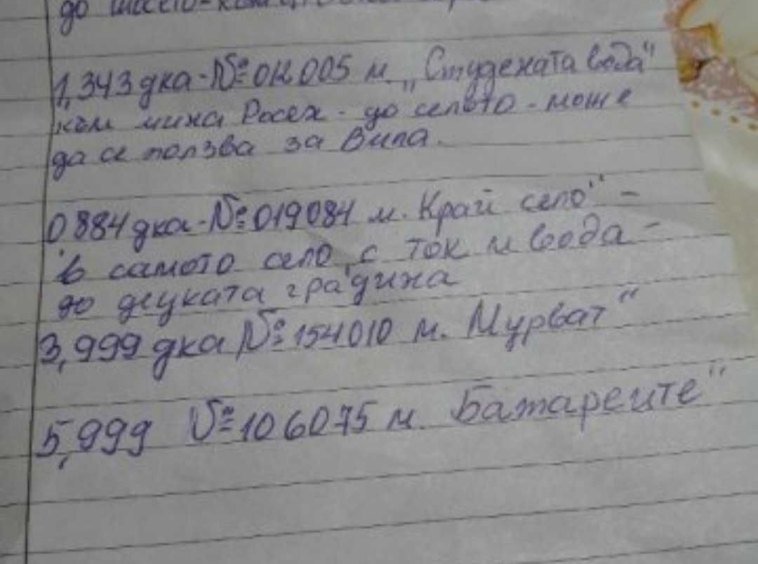 до шосето
1,343 дка - № 012005 м. „Студената вода"
към мина Росен - до селото - може
да се ползва за Вила.
0884 дка - № 019084 м. Край село" -
в самото село с ток и вода -
до децката градина
3,999 дка № 154010 м. Мурват"
5,999 № 106075 м. Батареите"